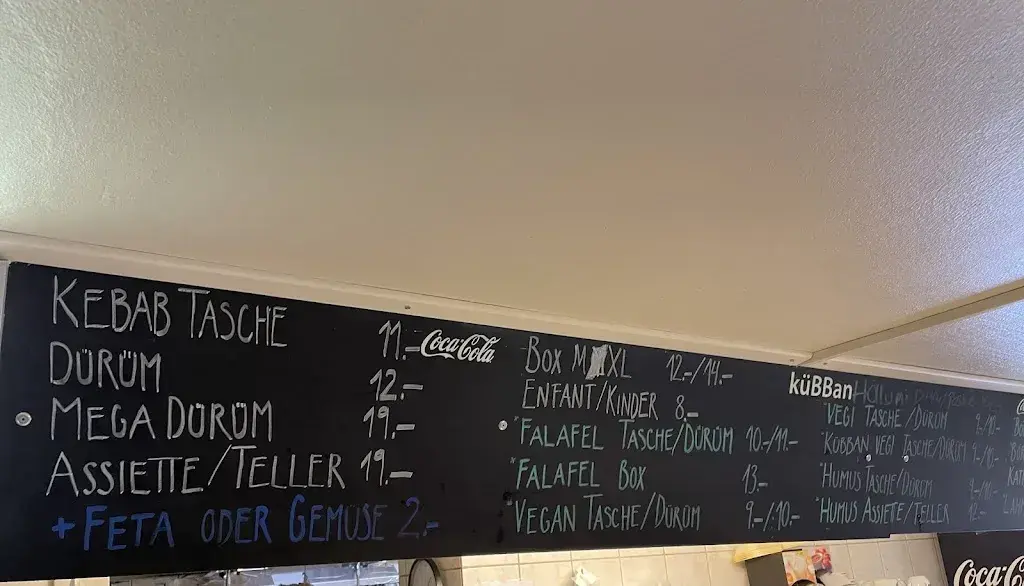 KEBAB TASCHE 11.-
DÜRÜM 12.-
MEGA DÜRÜM 19.-
ASSIETTE/TELLER 19.-
+ FETA ODER GEMÜSE 2.-
Coca-Cola
BOX M XL 12.-/14.-
ENFANT/KINDER 8.-
*FALAFEL TASCHE/DÜRÜM 10.-/11.-
*FALAFEL BOX 13.-
*VEGAN TASCHE/DÜRÜM 9.-/10.-
küBBan
*VEGI TASCHE/DÜRÜM 9.-/10.-
*KÜBBAN VEGI TASCHE/DÜRÜM 9.-/10.-
*HUMUS TASCHE/DÜRÜM 9.-/10.-
*HUMUS ASSIETE/TELLER 12.-
Coca-Co